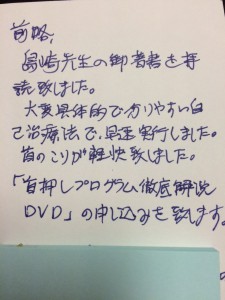 前略、
島崎先生の御著書を拝
読致しました。
大変具体的で分りやすい自
己治療法で、早速実行しました。
首のこりが軽快致しました。
「首押しプログラム徹底解説
DVD」の申し込みを致します。